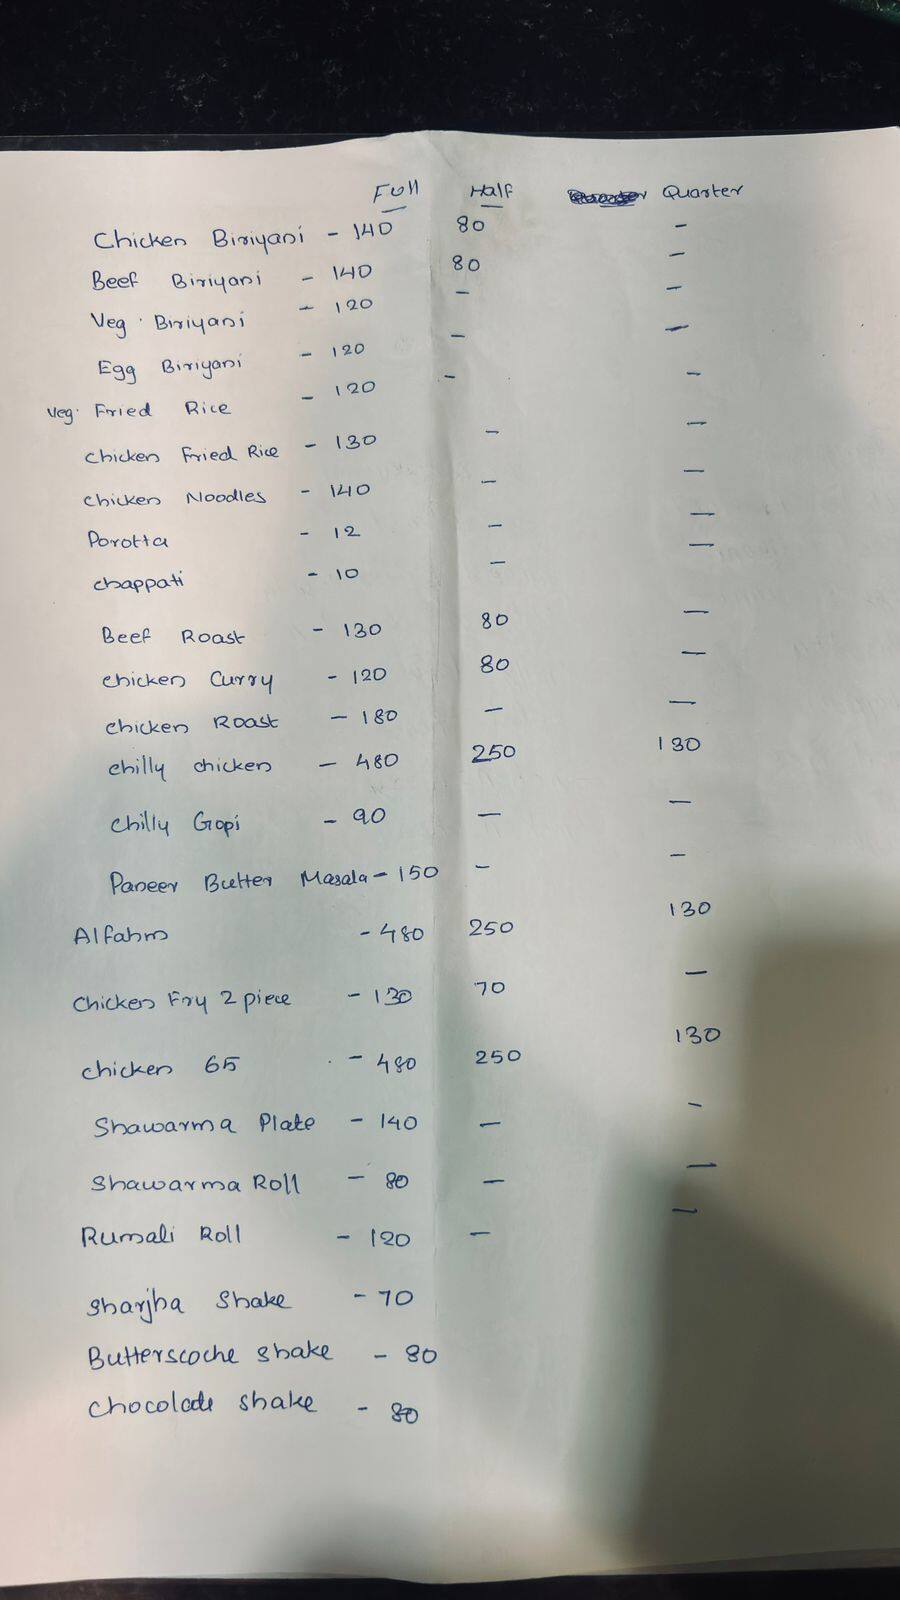 Full Half Quarter
Chicken Biriyani - 140 80 -
Beef Biriyani - 140 80 -
Veg. Biriyani - 120 - -
Egg Biriyani - 120 - -
Veg. Fried Rice - 120 - -
Chicken Fried Rice - 130 - -
Chicken Noodles - 140 - -
Porotta - 12 - -
Chappati - 10 - -
Beef Roast - 130 80 -
Chicken Curry - 120 80 -
Chicken Roast - 180 - -
Chilly chicken - 480 250 130
Chilly Gopi - 90 - -
Paneer Butter Masala - 150 - -
Alfahm - 480 250 130
Chicken Fry 2 piece - 130 70 -
Chicken 65 - 480 250 130
Shawarma Plate - 140 - -
Shawarma Roll - 80 - -
Rumali Roll - 120 - -
Sharjha Shake - 70
Butterscoche Shake - 80
Chocolate Shake - 80